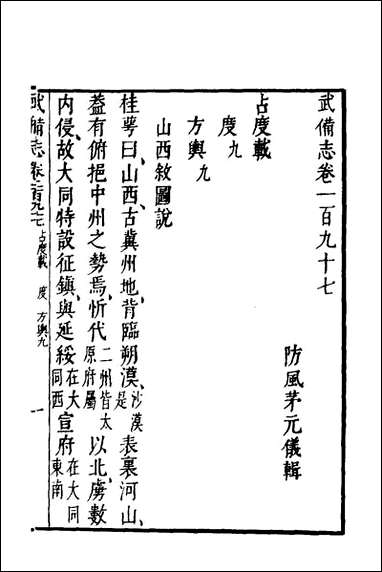 武備志卷一百九十七
防風茅元儀輯
占度載
度九
方輿九
山西敘圖說
桂萼曰、山西、古冀州地、背臨朔漠、沙漠是表裏河山、
蓋有俯挹中州之勢焉、忻代二州皆太原府屬以北、虜數
内侵、故大同特設征鎮、與延綏在大同西宣府在大同東南
武備志卷一百九十七 占度載 度 方輿九 一